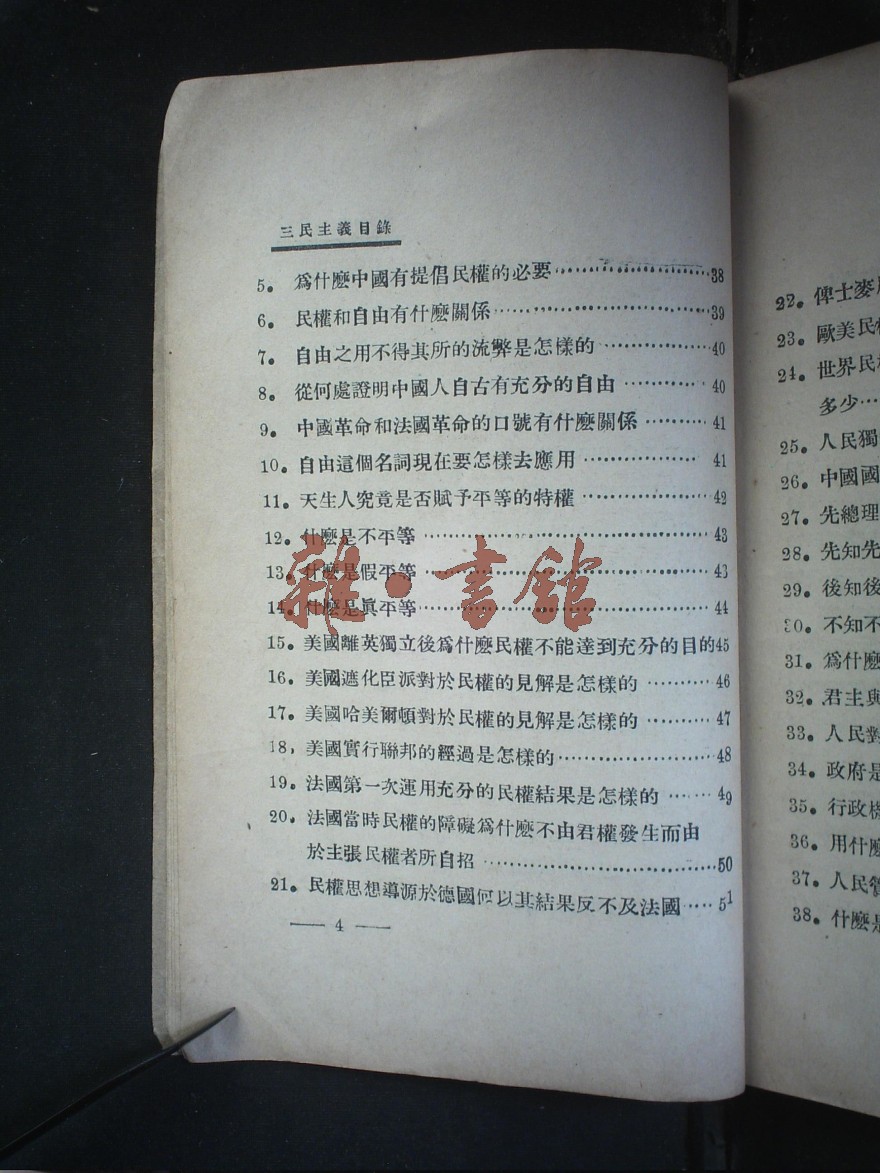 三民主義目錄
5。 爲什麽中國有提倡民權的必要··················38
6。 民權和自由有什麽關係··················39
7。 自由之用不得其所的流弊是怎樣的··················40
8。 從何處證明中國人自古有充分的自由··················40
9。 中國革命和法國革命的口號有什麽關係··················41
10。 自由這個名詞現在要怎樣去應用··················41
11。 天生人究竟是否賦予平等的特權··················42
12。 什麽是不平等··················43
13。 什麽是假平等··················43
14。 什麽是眞平等··················44
雜·書舘
15。 美國離英獨立後爲什麽民權不能達到充分的目的45
16。 美國遮化臣派對於民權的見解是怎樣的··················46
17。 美國哈美爾頓對於民權的見解是怎樣的··················47
18, 美國實行聯邦的經過是怎樣的··················48
19。 法國第一次運用充分的民權結果是怎樣的······49
20。 法國當時民權的障礙爲什麽不由君權發生而由
於主張民權者所自招··················50
21。 民權思想導源於德國何以其結果反不及法國·····51
— 4 —
22。 俾士麥
23。 歐美民
24。 世界民
多少···
25。 人民獨
26。 中國國
27。 先總理
28。 先知先
29。 後知後
30。 不知不
31。 爲什麽
32。 君主與
33。 人民對
34。 政府是
35。 行政機
36。 用什麽
37。 人民管
38。 什麽是